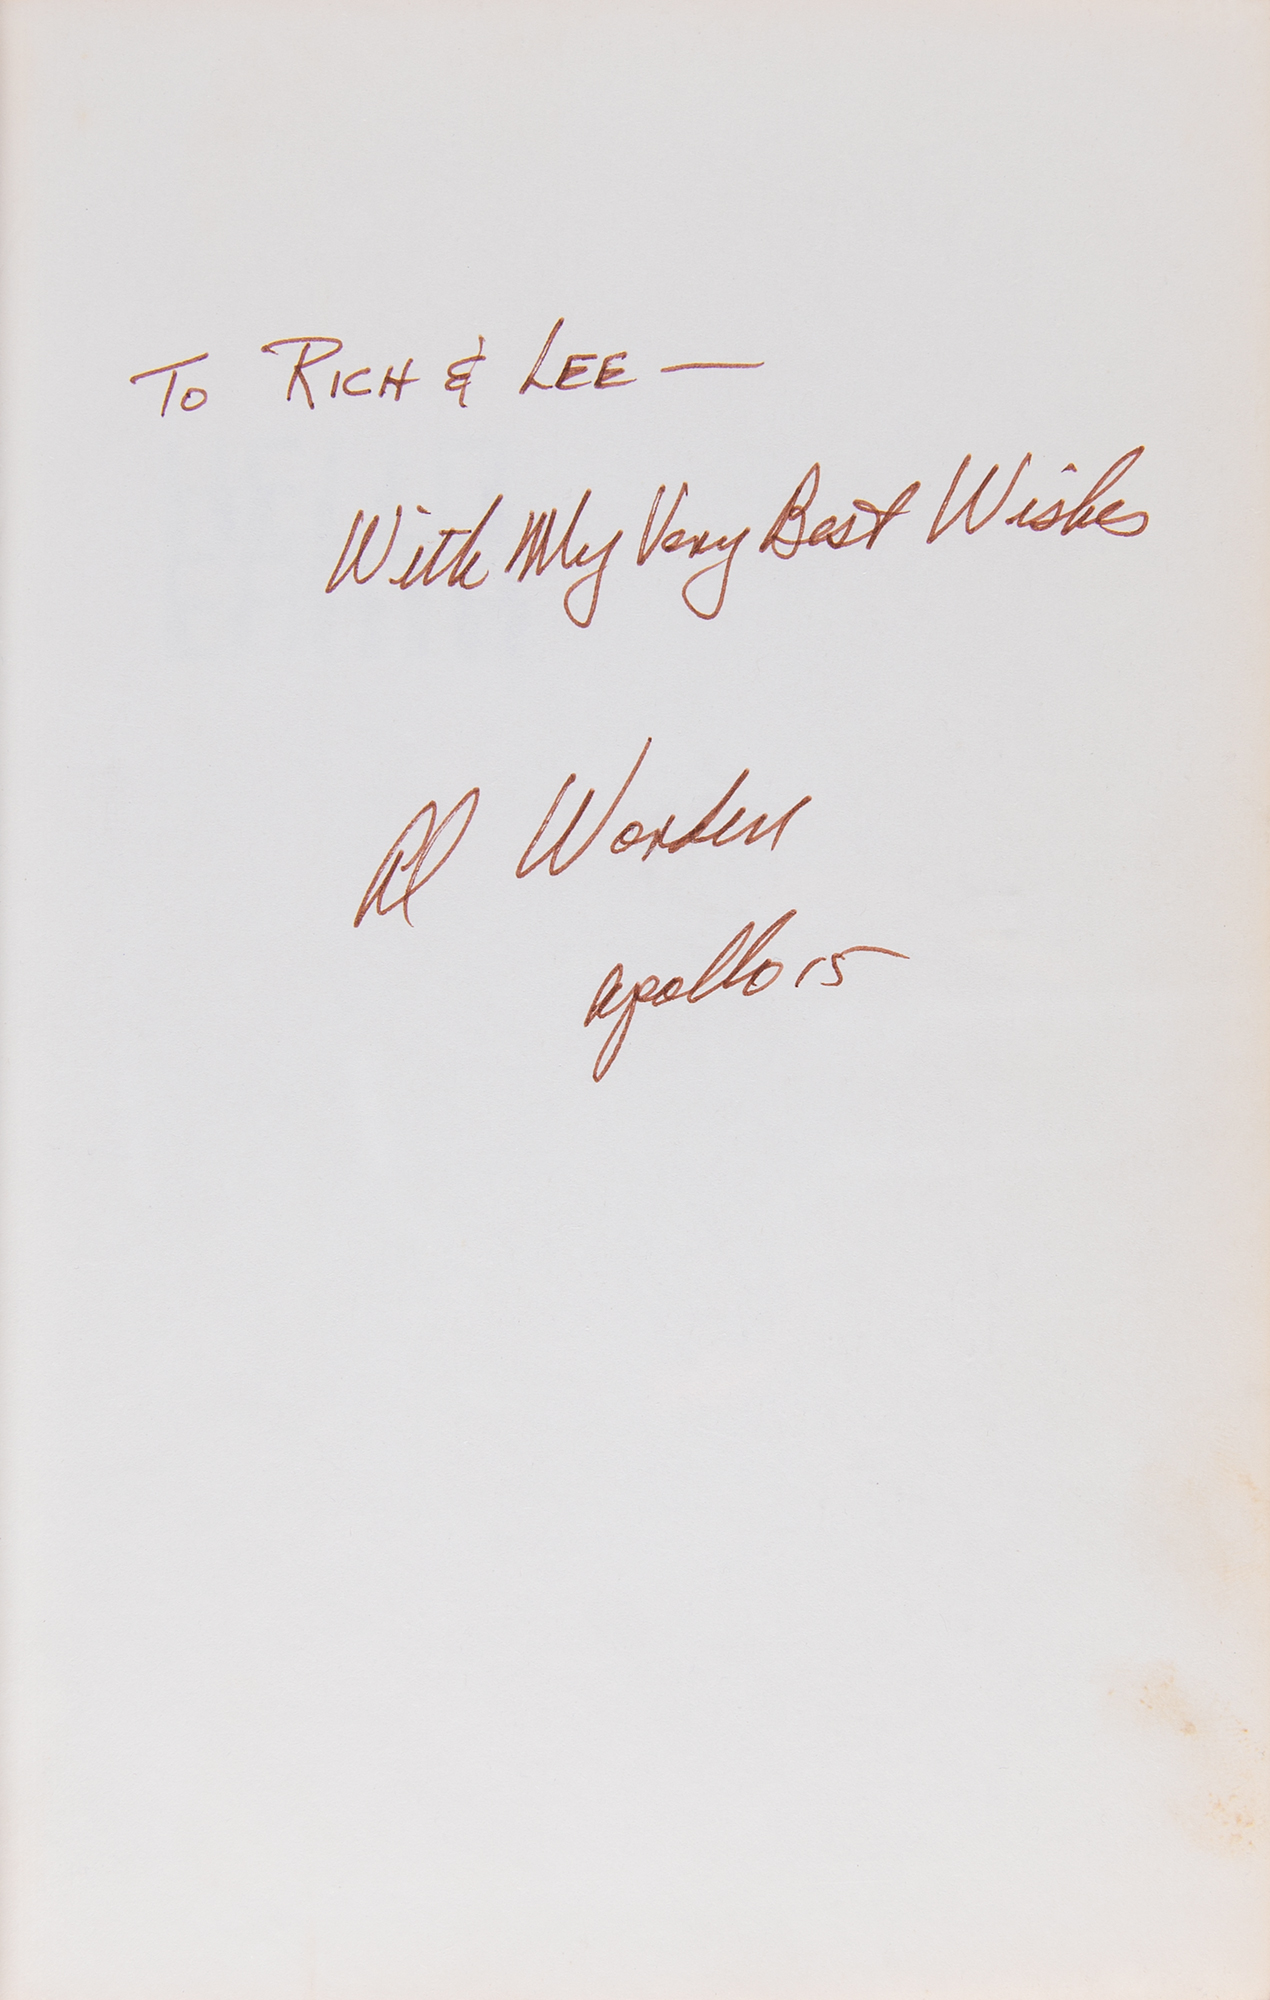 To RICH & LEE —
With My Very Best Wishes
Al Worden
apollo 15